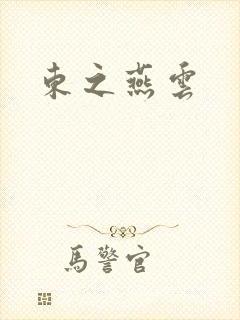 東之燕雲
馬警官